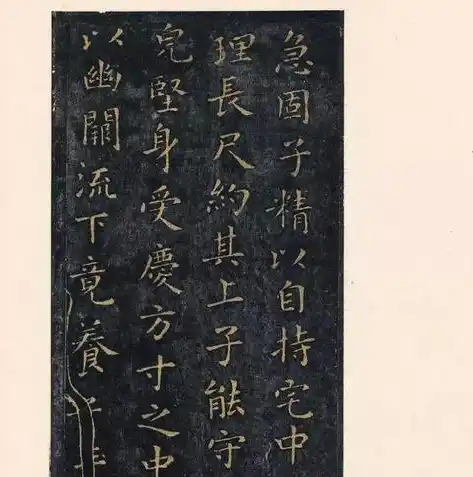 急固子精以自持宅中
理長尺約其上子能守
完堅身受慶方寸之中
以幽闕流下竟養子